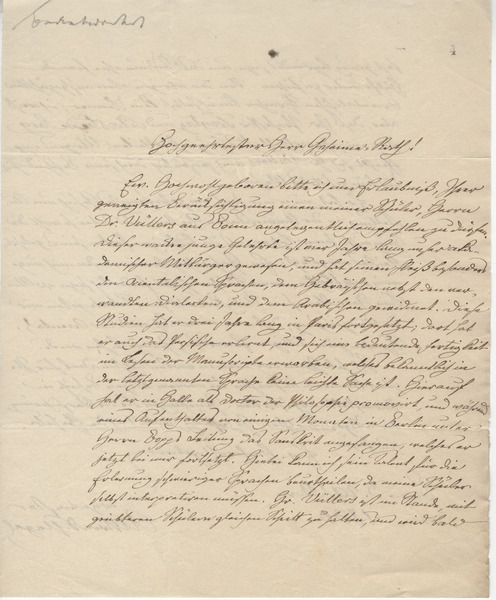 beantwortet
Hochgeehrtester Herr Geheime-Rath!
Ew. Hochwohlgeboren bitte ich um Erlaubniß, Ihrer
geneigten Berücksichtigung einen meiner Schüler, Herrn
Dr Vullers aus Bonn angelegentlich empfehlen zu dürfen.
Dieser wackre junge Gelehrte ist vier Jahre lang unser aka-
demischer Mitbürger gewesen, und hat seinen Fleiß besonders
den orientalischen Sprachen, dem Hebräischen nebst den ver-
wandten Dialecten, und dem Arabischen gewidmet. Diese
Studien hat er drei Jahre lang in Paris fortgesetzt; dort hat
er auch das Persische erlernt, und sich eine bedeutende Fertigkeit
im Lesen der Manuscripte erworben, welches bekanntlich in
der letztgenannten Sprache keine leichte Sache ist. Hierauf
hat er in Halle als Doctor der Philosophie promovirt, und während
eines Aufenthaltes von einigen Monaten in Berlin unter
Herrn Bopps Leitung das Sanskrit angefangen, welches er
jetzt bei mir fortsetzt. Hiebei kann ich sein Talent für die
Erlernung schwieriger Sprachen beurtheilen, da meine Schüler
selbst interpretiren müssen. Hr. Vullers ist im Stande, mit
geübteren Schülern gleichen Schritt zu halten, und wird bald